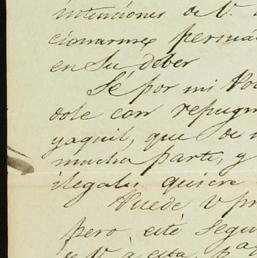 intenciones de V.
cionarme persua
en su deber
Sé por mi
dole con repug
yaquil, que de
mucha parte, y
ilegales, quiera
Puede V
pero, esté segu